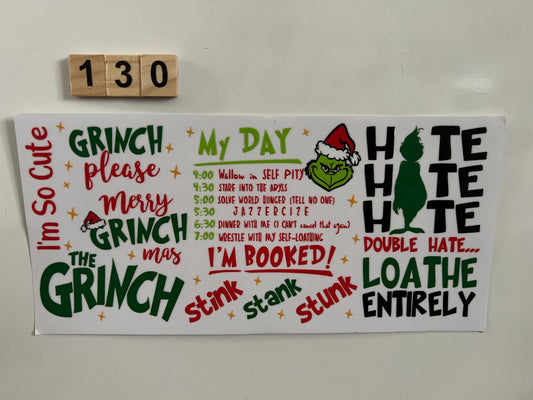 130
I'm So Cute
GRINCH
please
Merry
GRINCH
mas
THE
GRINCH
My DAY
4:00 Wallow in SELF PITY
4:30 STARE INTO THE ABYSS
5:00 SOLVE WORLD HUNGER (TELL NO ONE)
5:30 JAZZERCIZE
6:30 DINNER WITH ME (I CAN'T cancel that again)
7:00 WRESTLE WITH MY SELF-LOATHING
I'M BOOKED!
stink
stank
stunk
H TE
H TE
H TE
DOUBLE HATE...
LOATHE
ENTIRELY